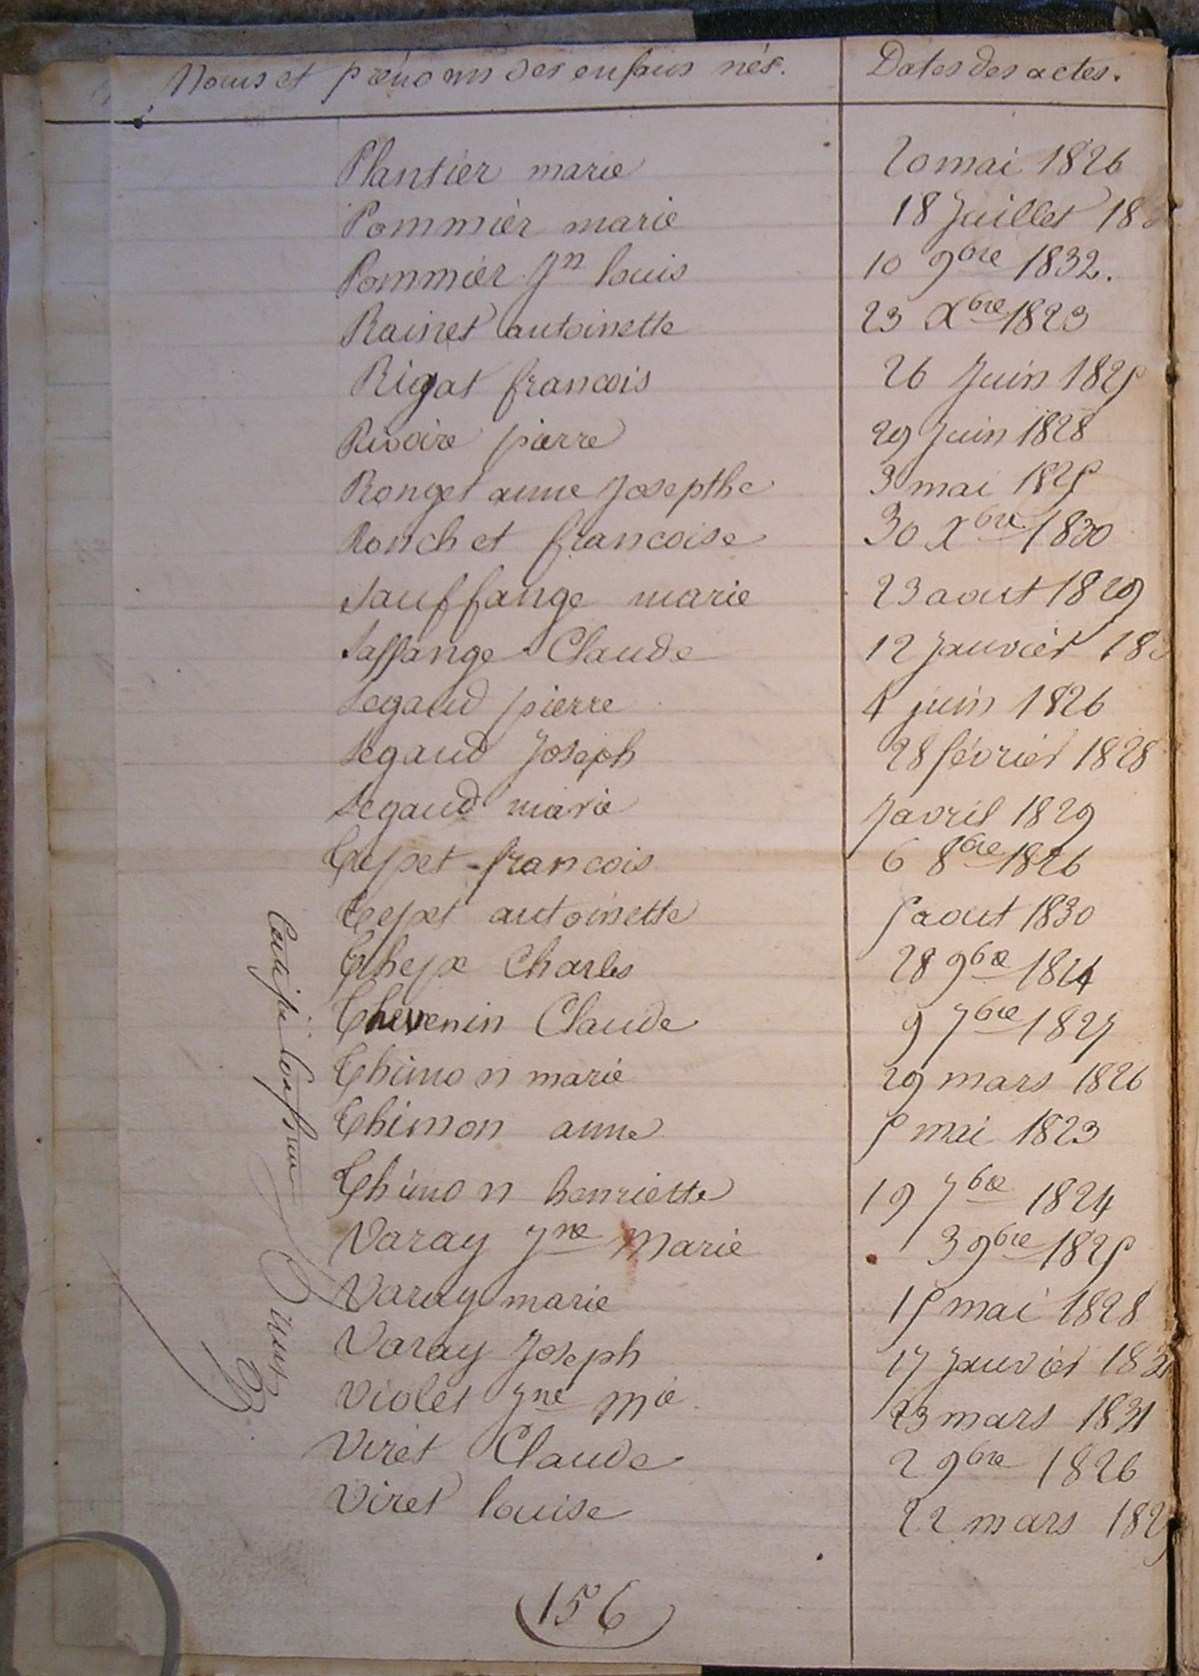 Noms et prénoms des enfans nés. Dates des actes.
Plantier marie 20 mai 1826
Pommier marie 18 Juillet
Pommier Jn louis 10 9bre 1832.
Rainet antoinette 23 Xbre 1823
Rigat francois 26 Juin 1825
Rivoire pierre 29 Juin 1828
Ronget anne Josepthe 3 mai 1825
Ronchet francoise 30 Xbre 1830
Sauffange marie 23 aout 1829
Saffange Claude 12 Janvier
Segaud pierre 4 juin 1826
Segaud Joseph 28 février 1828
Segaud marie 7 avril 1829
Tepet francois 6 8bre 1826
Tepet antoinette 5 aout 1830
Charles 28 9bre 1824
Thevenin Claude 9 7bre 1827
Thimon marie 29 mars 1826
Thimon anne 5 mai 1823
Thimon henriette 19 7bre 1824
Varay Jne Marie 3 9bre 1825
Varay marie 15 mai 1828
Varay Joseph 17 Janvier
Violet Jne Mie 23 mars 1831
Viret Claude 2 9bre 1826
Viret louise 22 mars
156